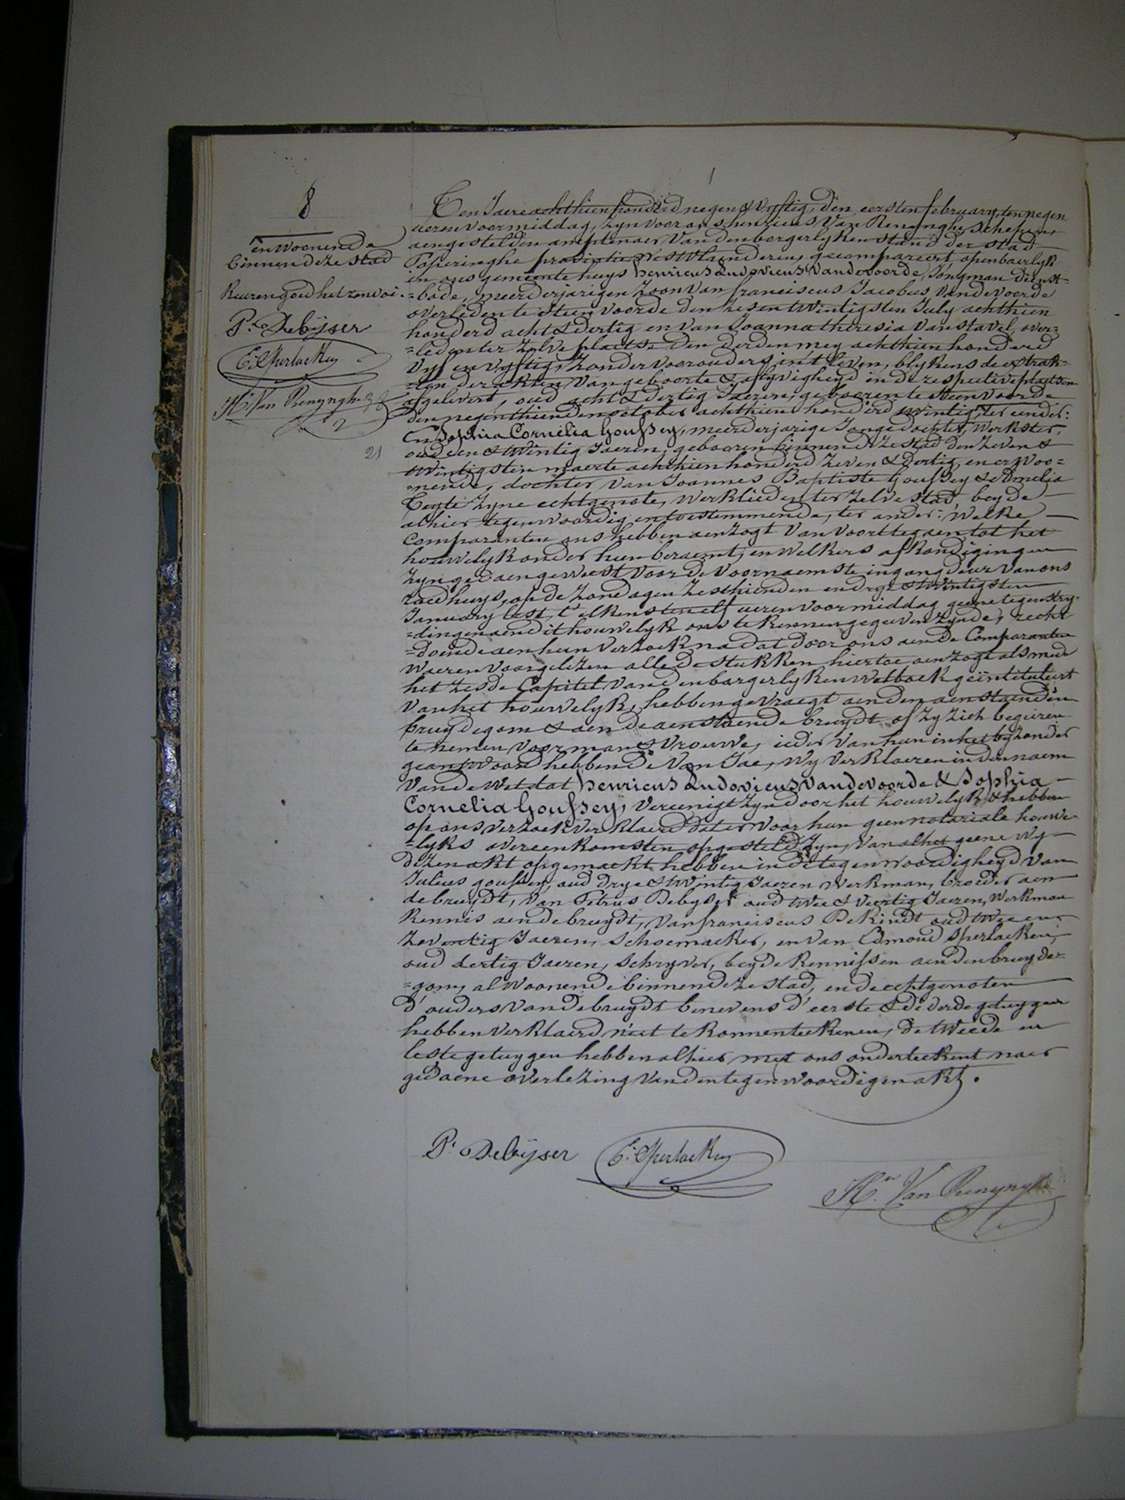 8
en woonende
binnen deze stad
Keuren goed het renvoi.
P.r Debÿser
E. Sperlaeken
H.ri Van Renynghe
21
Ten Jaere achthien honderd negen & vyftig, den eersten february, ten negen
ueren voormiddag, zyn voor ons henricus Van Renynghe, Schepen,
aengestelden amptenaer van den borgerlyken stand der stad
Poperinghe provintie WestVlaenderen, gecompareert openbaerlyk
in ons gemeente huys henricus Ludovicus Vandevoorde, Jongman dienst-
=bode, meerderjarigen zoon van franciscus Jacobus Vandevoorde
overleden te Steenvoorde den zesen twintigsten July achthien
honderd acht & dertig en van Joanna theresia Van Stavel, over-
=leden ter zelve plaetse den derden mey achthien honderd
vyf en vyftig, zonder voorouders in't leven, blykens de extrak-
=ten der akten van geboorte & aflyvigheyd in de respective plaetsen
afgelivert, oud acht & dertig Jaeren, geboren te Steenvoorde
den negenthienden october achthien honderd twintig, ter eender:
En Sophia Cornelia Goussey, meerderjarige Jonge dochter, Werkster,
oud een & twintig Jaeren, geboren binnen deze stad den zeven &
twintigsten maerte achthien honderd zeven & dertig, en er woo-
=nende, dochter van Joannes Baptiste Goussey & Cornelia
Tryte zyne echtgenote, Werklieden ter zelve stad, beyde
alhier tegenwoordig en toestemmende, ter ander: Welke
Comparanten ons hebben aenzogt van voort te gaen tot het
houwelyk onder hun beraemt, en welkers afkondigingen
zyn gedaen geweest voor de voornaemste ingangdeur van ons
raedhuys, op de zondagen zesthienden en dry & twintigsten
January lest, t'elkens ten elf ueren voormiddag geene tegenstry-
=dingen aen dit houwelyk ons te kennen gegeven zynde, recht
=doende aen hun verzoek na dat door ons aen de Comparanten
waeren voorgelezen alle de stukken hiertoe aenzogt als mede
het zesde Capitel van den borgerlyken wetboek geïntituleert
van het houwelyk, hebben gevraegt aen den aenstaenden
bruydegom & aen de aenstaende bruydt of zy zich begeeren
te nemen voor man & vrouwe, ieder van hun in het byzonder
geantwoord hebbende van Jae, Wy verklaeren in den naem
van de wet dat henricus Ludovicus Vandevoorde & Sophia
Cornelia Goussey, vereenigt zyn door het houwelyk & hebben
op ons verzoek verklaerd dat er voor hun geen notariale houwe-
=lyks overeenkomsten opgesteld zyn, van al het geene wy
dezen akt opgemaekt hebben in de tegenwoordigheyd van
Julius Goussey, oud drye & twintig Jaeren Werkman, broeder aen
de bruydt, van Petrus Debyser oud twee & veertig Jaeren, Werkman
Kennis aen de bruydt, van franciscus De Kindt oud twee en
zeventig Jaeren, Schoemacker, en van Edmond Sperlaeken,
oud dertig Jaeren, Schryver, beyde kennissen aen den bruyde-
=gom, al woonende binnen deze stad, en de echtgenoten
d'ouders van de bruydt benevens d'eerste & de derde getuygen
hebben verklaerd niet te konnen teekenen, de tweede en
leste getuygen hebben alhier met ons onderteekent naer
gedaene overlezing van den tegenwoordigen akt.
P.r Debÿser E. Sperlaeken
H.ri Van Renynghe